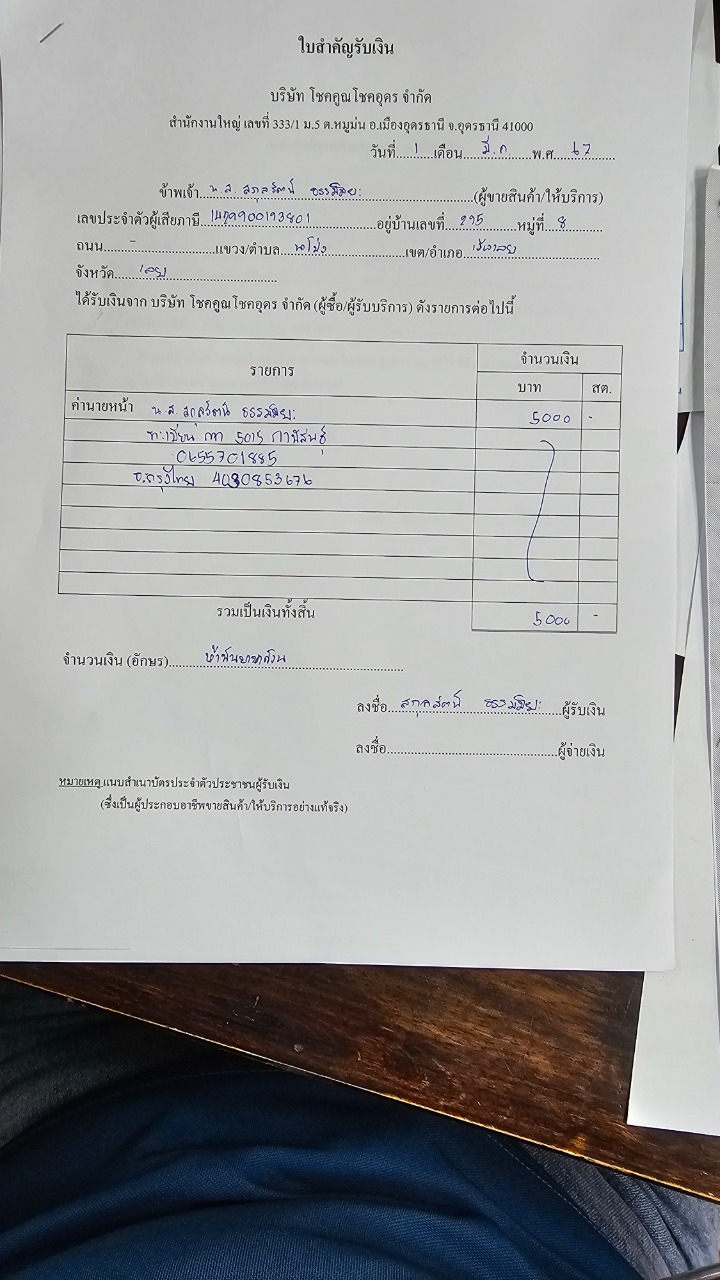 ใบสำคัญรับเงิน
บริษัท โชคคูณโชคอุดร จำกัด
สำนักงานใหญ่ เลขที่ 333/1 ม.5 ต.หมูม่น อ.เมืองอุดรธานี จ.อุดรธานี 41000
วันที่ 1 เดือน มี.ค พ.ศ. 67
ข้าพเจ้า น.ส. (ผู้ขายสินค้า/ให้บริการ)
เลขประจำตัวผู้เสียภาษี อยู่บ้านเลขที่ 295 หมู่ที่ 8
ถนน - แขวง/ตำบล นาโป่ง เขต/อำเภอ เมืองเลย
จังหวัด เลย
ได้รับเงินจาก บริษัท โชคคูณโชคอุดร จำกัด (ผู้ซื้อ/ผู้รับบริการ) ดังรายการต่อไปนี้
รายการ จำนวนเงิน
บาท สต.
ค่านายหน้า น.ส. 5000 -
ทะเบียน 5015 กาฬสินธุ์
0655701885
ธ.กรุงไทย 4030853676
รวมเป็นเงินทั้งสิ้น 5000 -
จำนวนเงิน (อักษร) ห้าพันบาทถ้วน
ลงชื่อ ผู้รับเงิน
ลงชื่อ ผู้จ่ายเงิน
หมายเหตุ แนบสำเนาบัตรประจำตัวประชาชนผู้รับเงิน
(ซึ่งเป็นผู้ประกอบอาชีพขายสินค้า/ให้บริการอย่างแท้จริง)